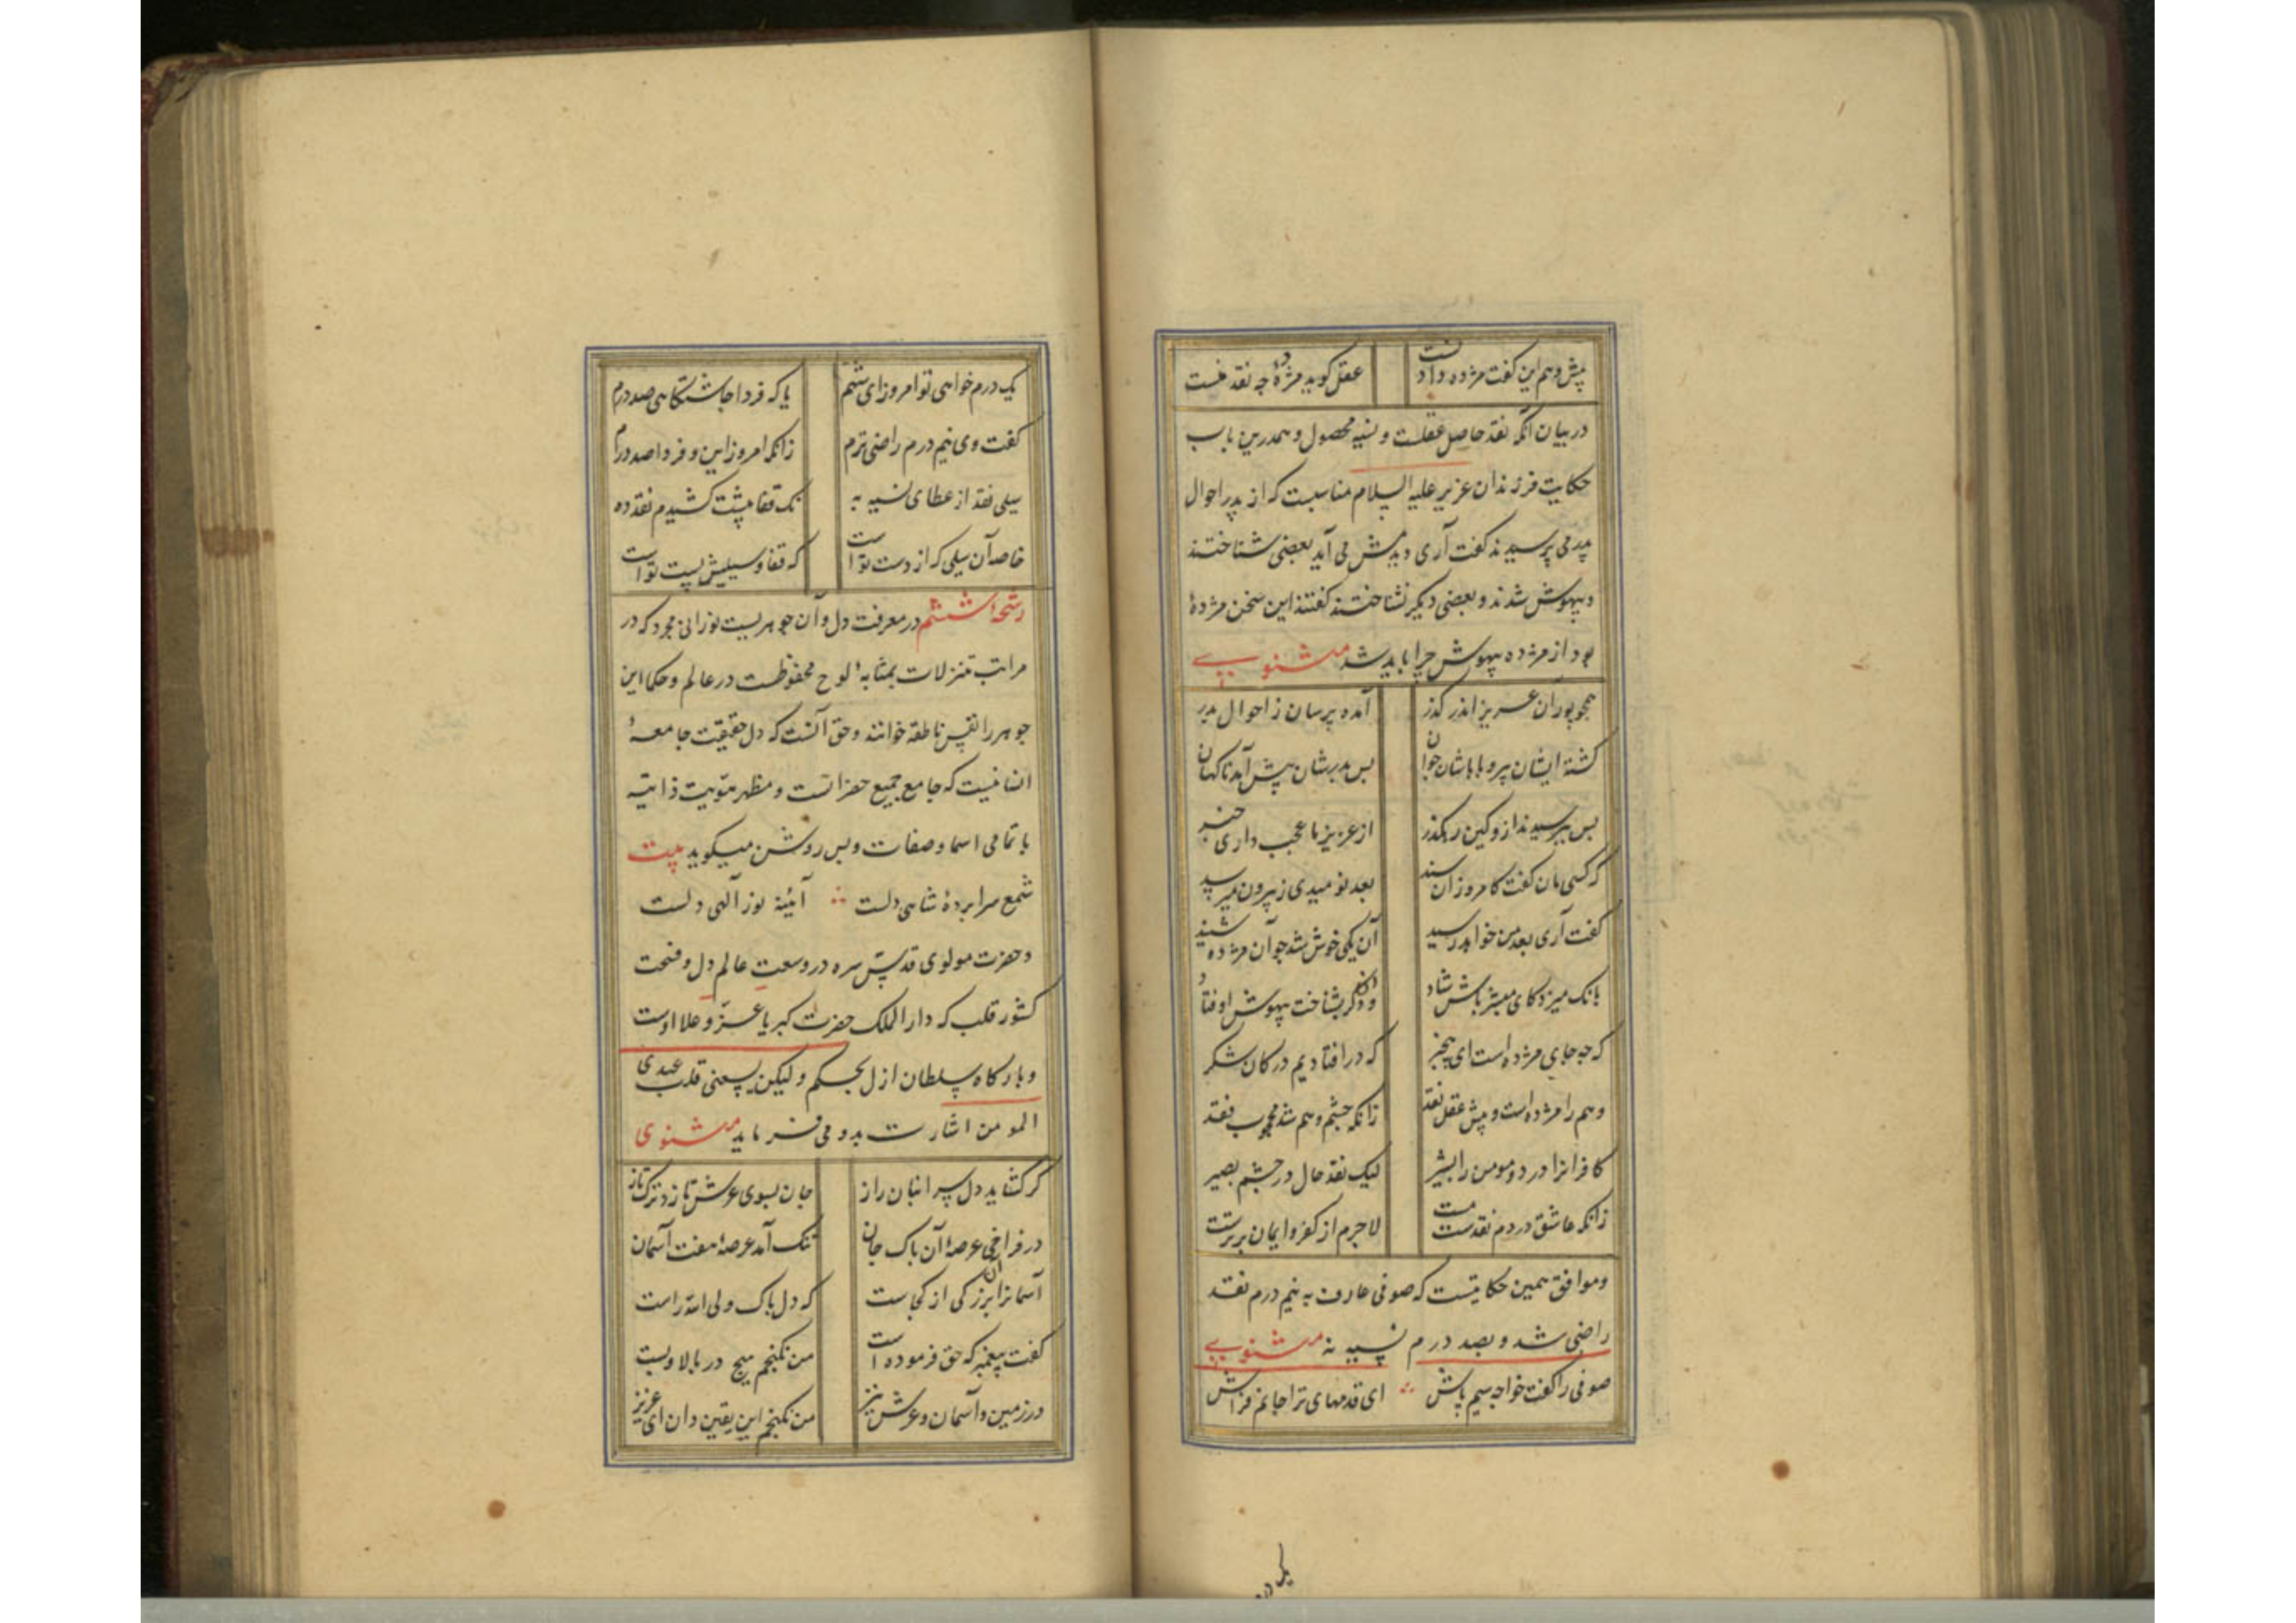 پیش وهم این گفت مژده دادنست عقل گوید مژدۀ چه نقد منست
در بیان آنکه نقد حاصل عقلست و نسیه محصول وهم درین باب
حکایت فرزندان عزیر علیه السلام مناسبست که از پدر احوال
پدر می پرسیدند گفت آری دیدمش می آید بعضی شناختند
و بیهوش شدند و بعضی دیگر نشناختند گفتند این سخن مژدۀ
بود از مژده بیهوش چرا باید شد مثنوی
همچو پوران عزیز اندر گذر آمده پرسان ز احوال پدر
گشته ایشان پیر و باباشان جوان پس پدرشان پیش آمد ناگهان
پس بپرسیدند ازو کین رهگذر از عزیز ما عجب داری خبر
که کسی مان گفت کامروز آن سند بعد نومیدی ز بیرون میرسد
گفت آری بعد من خواهد رسید آن یکی خوش شد چو آن مژده شنید
بانگ میزد کای مبشر باش شاد وان دگر بشناخت بیهوش اوفتاد
که چه جای مژده است ای بیخبر که در افتادیم در کان شکر
وهم را مژده است و پیش عقل نقد زانکه چشم وهم شد محجوب فقد
کافرانرا درد و مومن را بشیر لیک نقد حال در چشم بصیر
زانکه عاشق در دم نقدست مست لاجرم از کفر و ایمان برترست
و موافق همین حکایتیست که صوفی عارف به نیم درم نقد
راضی شد و بصد درم نسیه نه مثنوی
صوفی را گفت خواجه سیم پاش ای قدمهای ترا جانم فراش
یک درم خواهی تو امروز ای شهم یا که فردا چاشتگاهی صد درم
گفت وی نیم درم راضی ترم زانکه امروز این و فردا صد درم
سیلی نقد از عطای نسیه به نک قفا پیشت کشیدم نقد ده
خاصه آن سیلی که از دست تو است که قفا و سیلیش پست تو است
رشحۀ ششم در معرفت دل و آن جوهریست نورانی مجرد که در
مراتب تنزلات بمثابۀ لوح محفوظست در عالم و حکما این
جوهر را نفس ناطقه خوانند و حق آنست که دل حقیقت جامعۀ
انسانیست که جامع جمیع حضراتست و مظهر هویت ذاتیه
با تمامی اسما و صفات و بس روشن میگوید بیت
شمع سراپردۀ شاهی دلست آئینۀ نور آلهی دلست
و حضرت مولوی قدس سره در وسعت عالم دل و فسحت
کشور قلب که دارالملک حضرت کبریا عز و علا اوست
و بارگاه سلطان ازل بحکم ولیکن یسعنی قلب عبدی
المومن اشارت بدو می فرماید مثنوی
گر گشاید دل سر انبان راز جان بسوی عرش تازد ترکتاز
در فراخی عرصۀ آن پاک جان تنگ آمد عرصۀ هفت آسمان
آسمانرا آن بزرگی از کجاست که دل پاک ولی الله راست
گفت پیغمبر که حق فرموده است من نگنجم هیچ در بالا و پست
در زمین و آسمان و عرش نیز من نگنجم این یقین دان ای عزیز